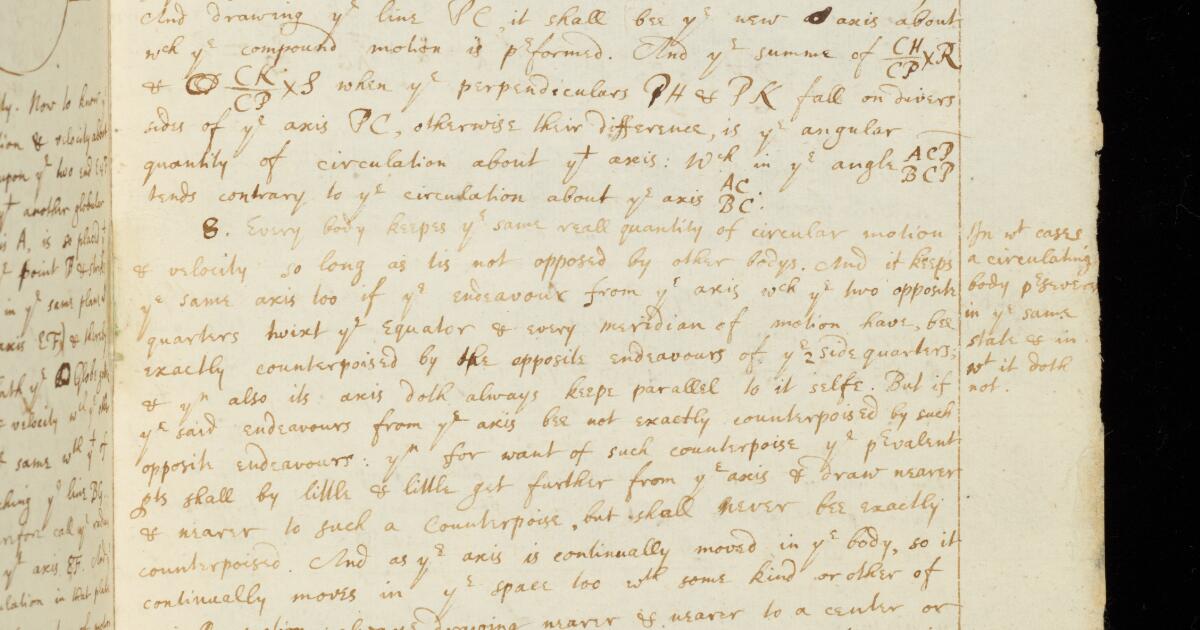 And drawing yᵉ line PC it shall bee yᵉ new axis about
wᶜʰ yᵉ compound motion is pᵉformed. And yᵉ summe of CH/CP × R
& CK/CP × S when yᵉ perpendiculars PH & PK fall on divers
sides of yᵉ axis PC, otherwise their difference, is yᵉ angular
quantity of circulation about yᵗ axis: Wᶜʰ in yᵉ angle ACP BCP
tends contrary to yᵉ circulation about yᵉ axis AC. BC.
8. Every body keepes yᵉ same reall quantity of circular motion
& velocity so long as tis not opposed by other bodys. And it keeps
yᵉ same axis too if yᵉ endeavour from yᵉ axis wᶜʰ yᵉ two opposite
quarters twixt yᵉ Equator & every meridian of motion have, bee
exactly counterpoised by the opposite endeavours of yᵉ 2 side quarters;
& yⁿ also its axis doth always keepe parallel to it selfe. But if
yᵉ said endeavours from yᵉ axis bee not exactly counterpoised by such
opposite endeavours: yⁿ for want of such counterpoise yᵉ pᵉvalent
pts shall by little & little get further from yᵉ axis & draw nearer
& nearer to such a Counterpoise, but shall never bee exactly
counterpoised. And as yᵉ axis is continually moved in yᵉ body, so it
continually moves in yᵉ space too wᵗʰ some kind or other of
motion always drawing nearer & nearer to a center or
In wᵗ cases
a circulating
body pᵉsevers
in yᵉ same
state & in
wᵗ it doth
not.
ly. Now to know
ion & velocity about
upon yᵉ two end
yᵗ another globular
A, is so placed
point B &
in yᵉ same plane
axis EF) &
yᵉ Globe
velocity wᶜʰ
same wᵗʰ yᵗ of
yᵉ line
call yᵉ
yᵉ axis EF.
in that